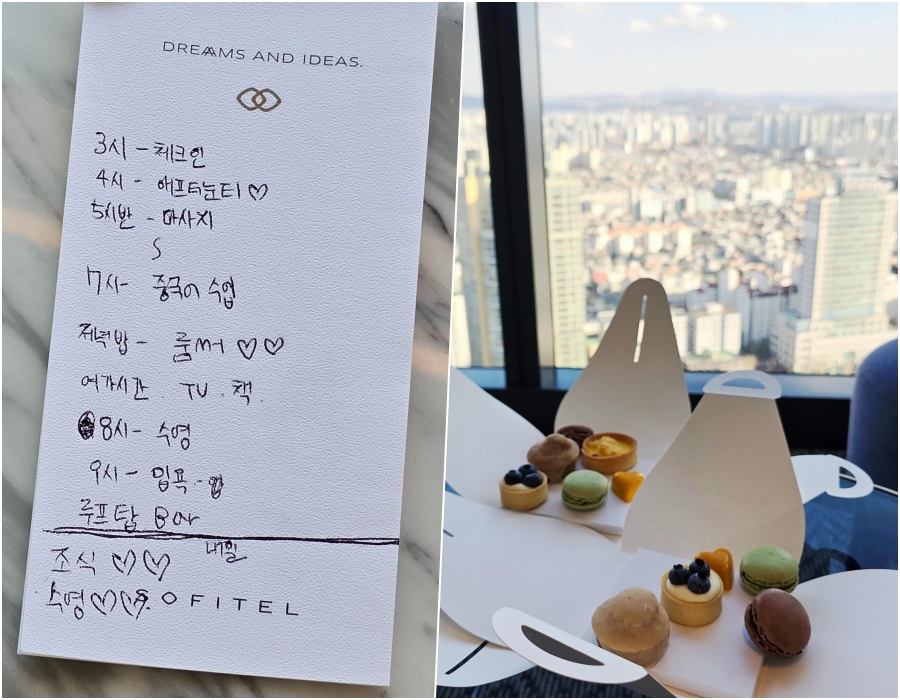 DREAMS AND IDEAS.
3시 - 체크인
4시 - 애프터눈티 ♡
5시반 - 마사지
S
7시 - 중국어 수업
저녁밥 - 룸써 ♡ ♡
여가시간 . TV . 책.
8시 - 수영
9시 - 입욕 -
루프탑 Bar
내일
조식 ♡ ♡
수영 ♡ ♡
SOFITEL